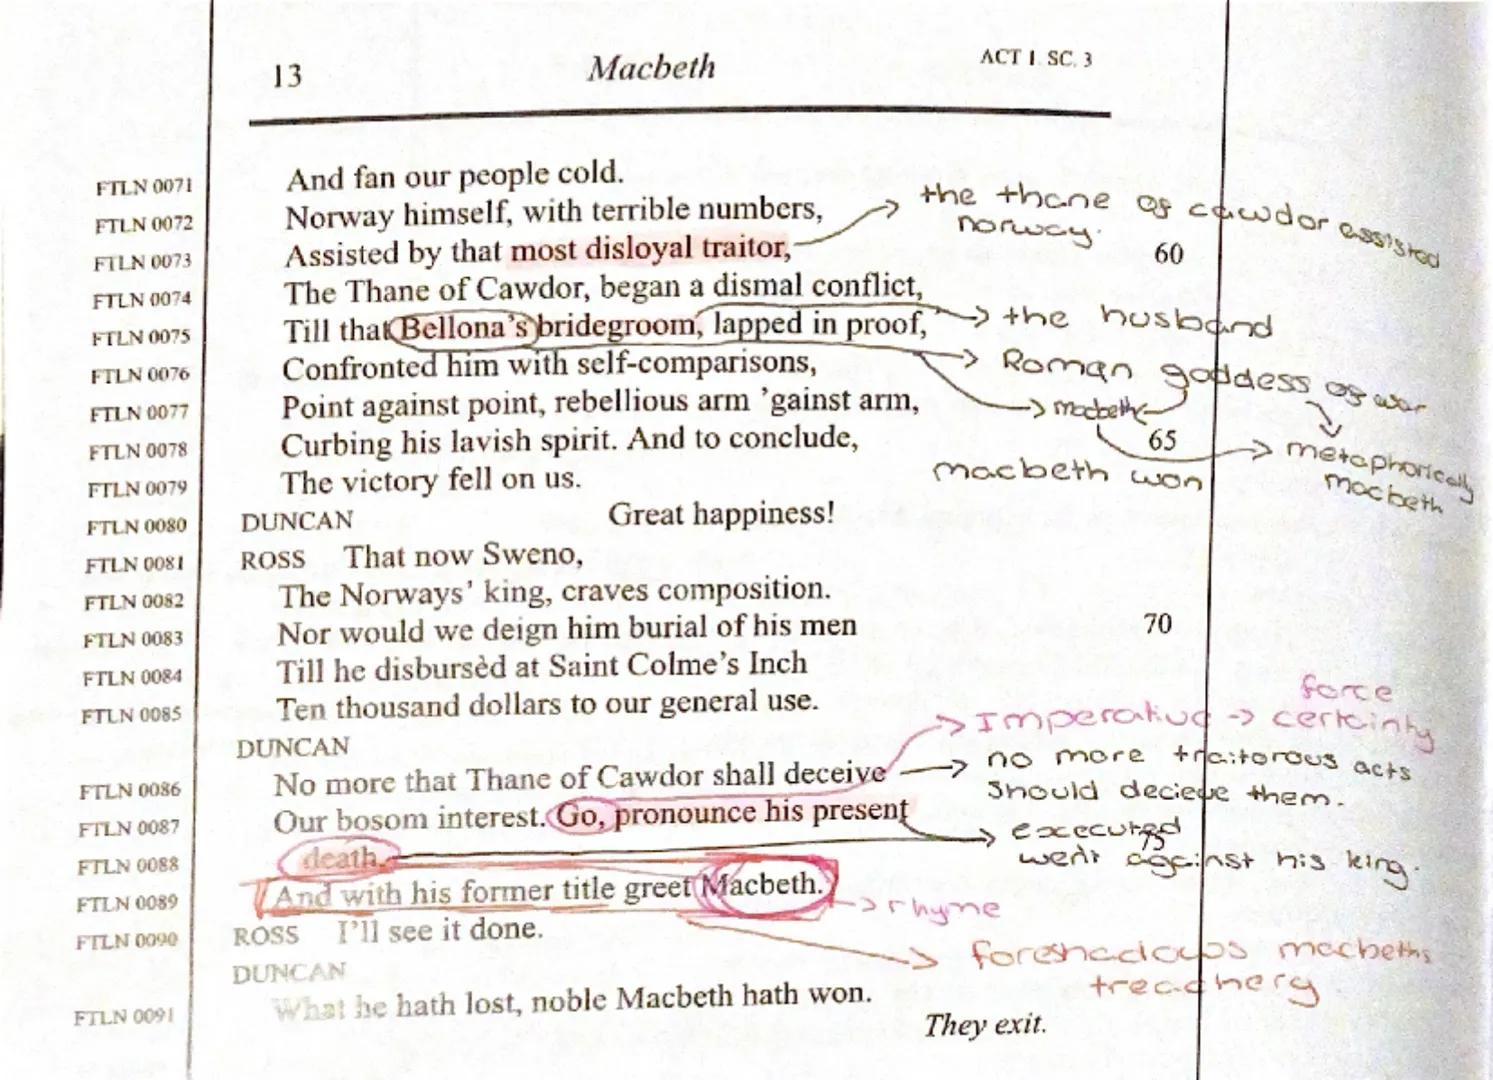 13 Macbeth ACT 1. SC. 3
FTLN 0071 And fan our people cold.
FTLN 0072 Norway himself, with terrible numbers,
the thane of cawdor assisted
norway.
FTLN 0073 Assisted by that most disloyal traitor, 60
FTLN 0074 The Thane of Cawdor, began a dismal conflict,
FTLN 0075 Till that Bellona's bridegroom, lapped in proof,
the husband
FTLN 0076 Confronted him with self-comparisons,
Roman goddess of war
FTLN 0077 Point against point, rebellious arm 'gainst arm,
macbeth
FTLN 0078 Curbing his lavish spirit. And to conclude, 65
metaphorically
macbeth
FTLN 0079 The victory fell on us.
macbeth won
FTLN 0080 DUNCAN Great happiness!
FTLN 0081 ROSS That now Sweno,
FTLN 0082 The Norways' king, craves composition.
FTLN 0083 Nor would we deign him burial of his men 70
FTLN 0084 Till he disbursèd at Saint Colme's Inch
FTLN 0085 Ten thousand dollars to our general use.
force
Imperative → certainty
DUNCAN
FTLN 0086 No more that Thane of Cawdor shall deceive
no more traitorous acts
should decieve them.
FTLN 0087 Our bosom interest. Go, pronounce his present
executed 75
went against his king.
FTLN 0088 death,
FTLN 0089 And with his former title greet Macbeth.
rhyme
FTLN 0090 ROSS I'll see it done.
foreshadows macbeths
treachery
DUNCAN
FTLN 0091 What he hath lost, noble Macbeth hath won.
They exit.